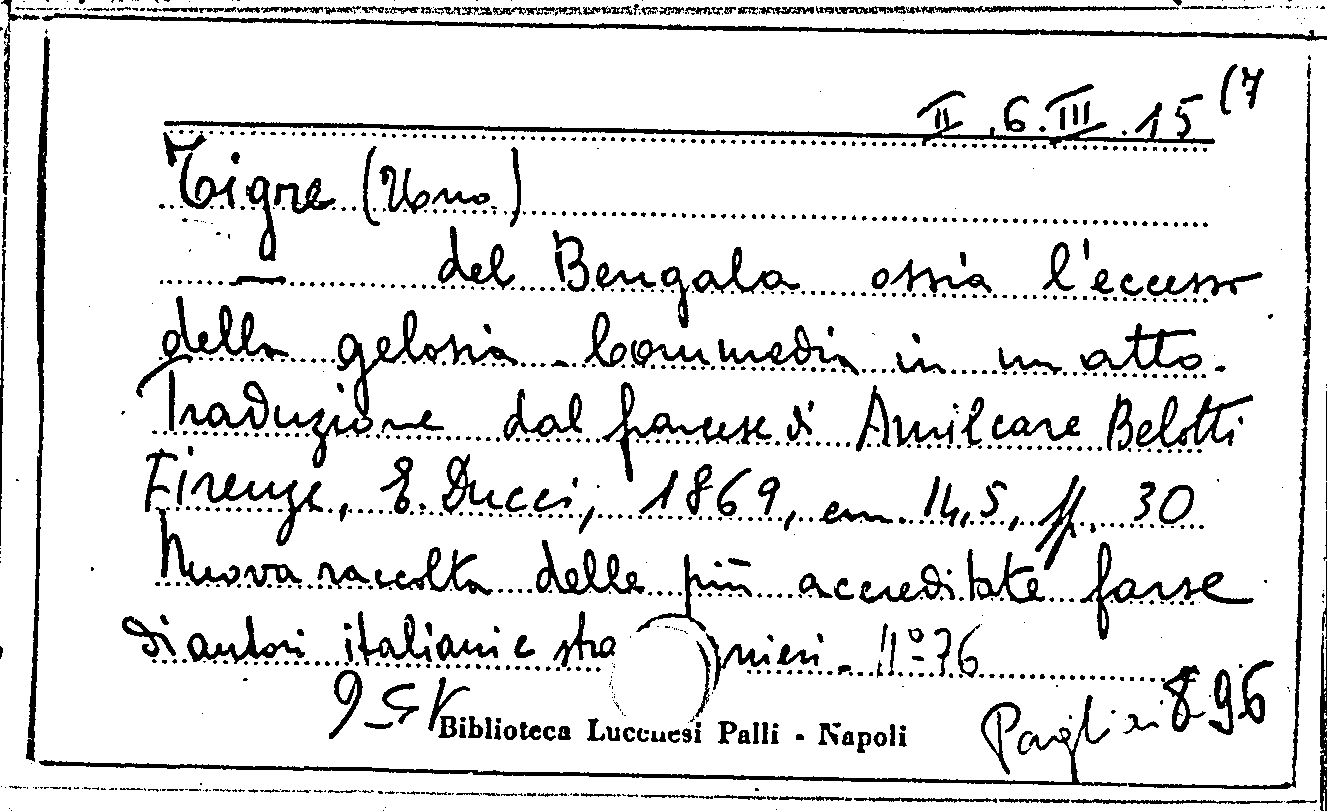 II.6.III.15 (7
Tigre (Una)
— del Bengala ossia l'eccesso
della gelosia. Commedia in un atto.
Traduzione dal francese di Amilcare Belotti
Firenze, E. Ducci, 1869, cm. 14,5, pp. 30
Nuova raccolta delle più accreditate farse
di autori italiani e stra nieri. n° 76
Biblioteca Lucchesi Palli - Napoli
896